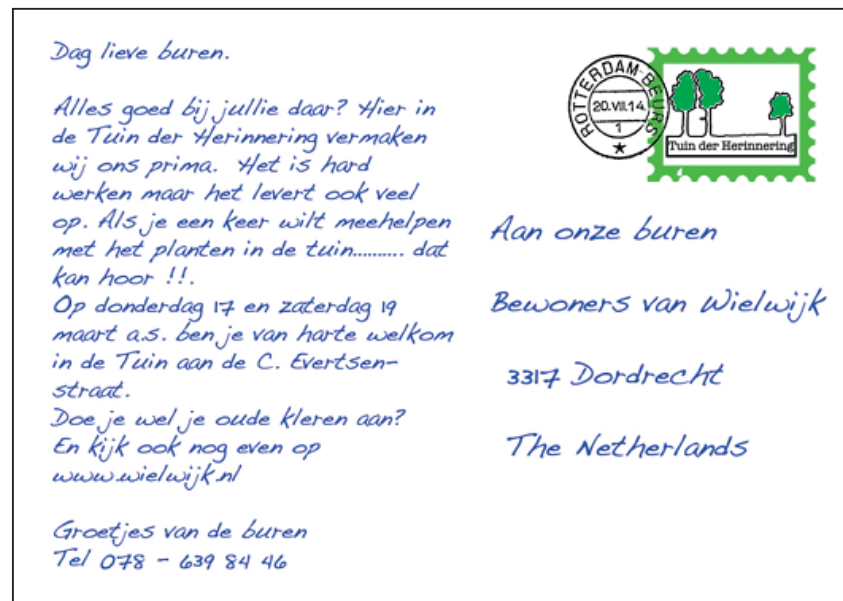 Dag lieve buren.
Alles goed bij jullie daar? Hier in
de Tuin der Herinnering vermaken
wij ons prima. Het is hard
werken maar het levert ook veel
op. Als je een keer wilt meehelpen
met het planten in de tuin.......... dat
kan hoor !!.
Op donderdag 17 en zaterdag 19
maart a.s. ben je van harte welkom
in de Tuin aan de C. Evertsen-
straat.
Doe je wel je oude kleren aan?
En kijk ook nog even op
www.wielwijk.nl
Groetjes van de buren
Tel 078 - 639 84 46
ROTTERDAM-BEURS
20.VII.14.
1
Tuin der Herinnering
Aan onze buren
Bewoners van Wielwijk
3317 Dordrecht
The Netherlands